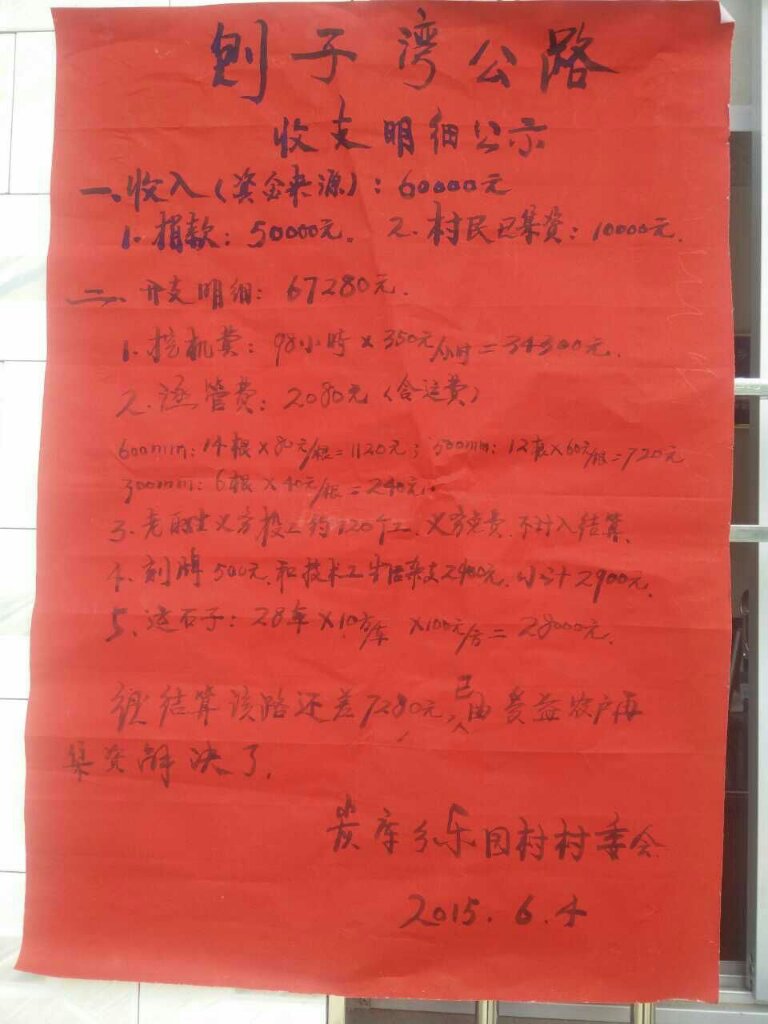 刨子湾公路
收支明细公示
一、收入(资金来源):60000元
1.捐款:50000元. 2.村民已集资:10000元.
二、开支明细:67280元.
1.挖机费:98小时×350元/小时=34300元.
2.涵管费:2080元(含运费)
600mm:14根×80元/根=1120元;500mm:12根×60元/根=720元
300mm:6根×40元/根=240元.
3.义方投工约120个工,义方免费,不计入结算.
4.刻牌500元,和技术工生活杂支2400元,小计2900元.
5.运石子:28车×10方/车×100元/方=28000元.
经结算该路还差7280元,已由受益农户再
集资解决了.
乡乐园村村委会
2015.6.4